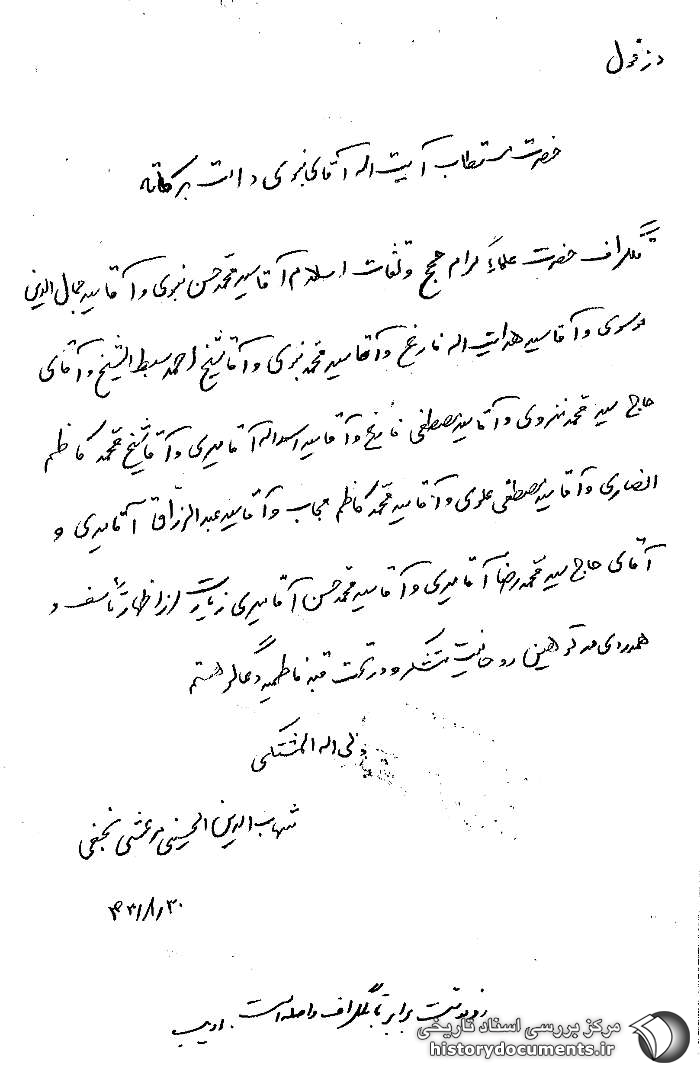 دزفول
حضرت مستطاب آیت اله آقای نبوی دامت برکاته
تلگراف حضرت علماء کرام حجج و ثقات اسلام آقا سید محمد حسن نبوی و آقا سید جمال الدین
موسوی و آقا سید هدایت اله فارغ و آقا سید محمد نبوی و آقا شیخ احمد سبط الشیخ و آقای
حاج سید محمد و آقا سید مصطفی فارغ و آقا سید اسداله آقامیری و آقا شیخ محمد کاظم
انصاری و آقا سید مصطفی علوی و آقا سید محمد کاظم مجاب و آقا سید عبدالرزاق آقامیری و
آقای حاج سید محمد رضا آقامیری و آقا سید محمد حسن آقامیری زیارت از اظهار تأسف و
همدردی روحانیت متشکر و در تحت قبه فاطمیه دعاگو هستم
و الی اله المشتکی
شهاب الدین الحسینی مرعشی نجفی
۴۳/۸/۳۰
رونوشت برابر با تلگراف واصله است. ادیب
مرکز بررسی اسناد تاریخی
historydocuments.ir